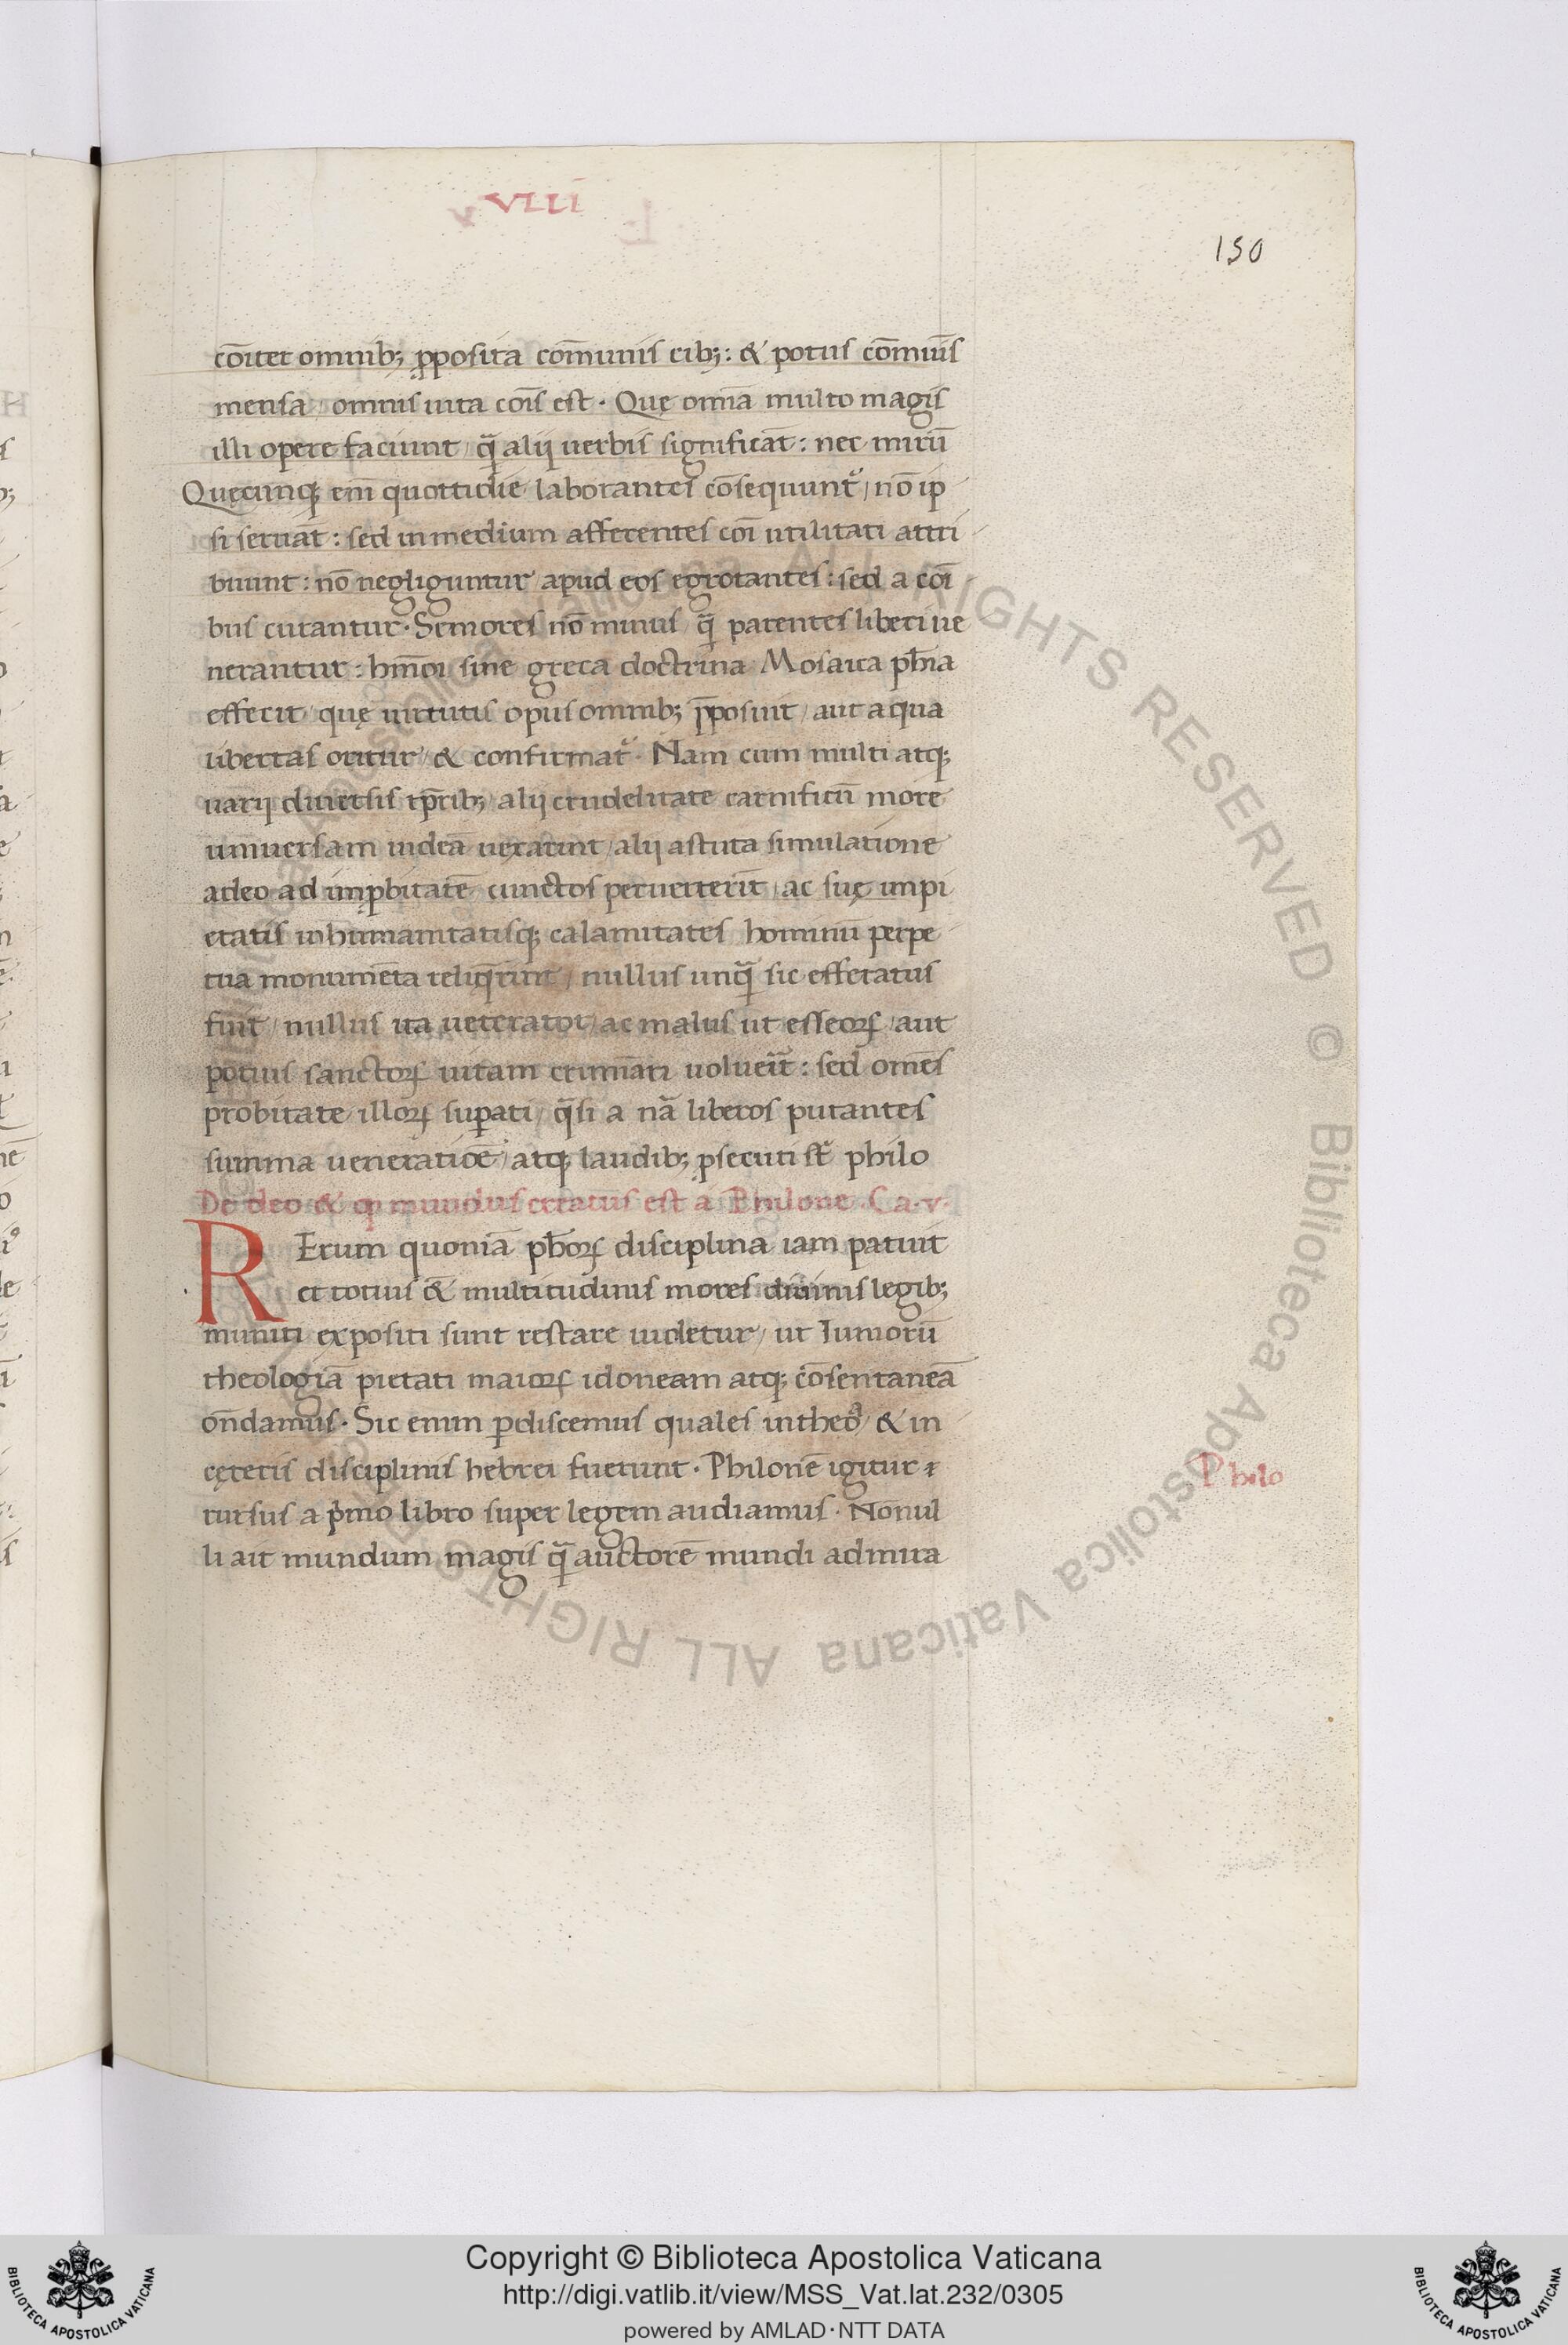 VIII
150
cōiter omnib; ꝓposita cōmunis cib;: & potus cōmuīs
mensa omnis uita coīs est. Quę omīa multo magis
illi opere faciunt / q̄ alij uerbis significāt: nec mirū
Quęcunq; em̄ quottidie laborantes cōsequunt᷑ / nō ip
si seruāt: sed in medium afferentes coī utilitati attri
buunt: nō negliguntur apud eos egrotantes: sed a coī
bus curantur. Seniores nō minus q̄ parentes liberi ue
nerantur: hm̄oi sine greca doctrina Mosaica ph̄ia
effecit / quę uirtutis opus omnib; p̄posuit / aut a qua
libertas oritur / & confirmat᷑. Nam cum multi atq;
uarij diuersis tp̄rib; alij crudelitate carnificū more
uniuersam iudeā uexarint / alij astuta simulatione
adeo ad imꝓbitatē cunctos peruerterīt / ac suę impi
etatis inhumanitatisq; calamitates hominū perpe
tua monumēta reliq̄rint / nullus unq̄ sic efferatus
fuit / nullus ita ueterator / ac malus ut esseoꝝ / aut
potius sanctoꝝ uitam crimīari uoluerīt: sed omēs
probitate illoꝝ suꝑati / q̄si a nā liberos putantes
summa ueneratiōe / atq; laudib; ꝓsecuti st̄ philo
De deo & ꝙ mundus creatus est a Philone. Ca. v.
RErum quoniā ph̄oꝝ disciplina iam patuit
et totius & multitudinis mores diuinis legib;
muniti expositi sunt restare uidetur / ut Iuniorū
theologiā pietati maioꝝ idoneam atq; cōsentaneā
on̄damus. Sic enim ꝑdiscemus quales in theoᵃ / & in
cęteris disciplinis hebrei fuerunt. Philonē igitur
rursus a pͥmo libro super legem audiamus. Nonul
Philo
li ait mundum magis q̄ auctorē mundi admira
Copyright © Biblioteca Apostolica Vaticana
http://digi.vatlib.it/view/MSS_Vat.lat.232/0305
powered by AMLAD·NTT DATA